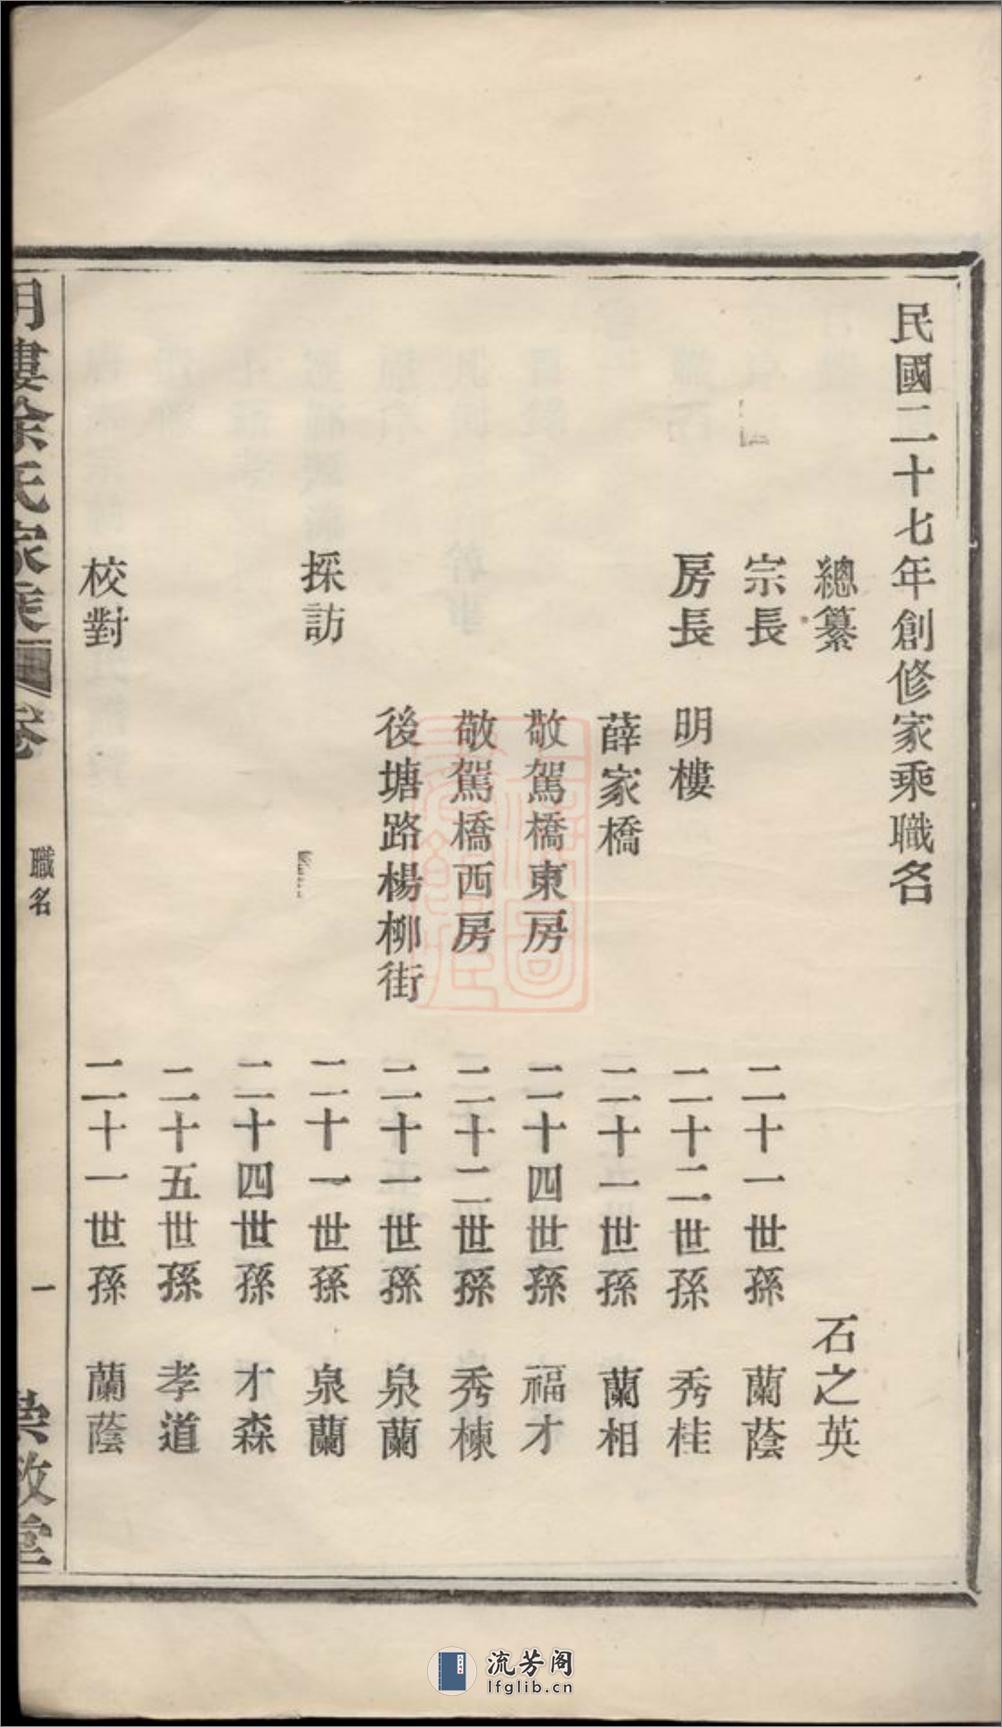 民國二十七年創修家乘職名
總纂 石之英
宗長 二十一世孫 蘭蔭
房長 明樓 二十二世孫 秀桂
薛家橋 二十一世孫 蘭相
敬駕橋東房 二十四世孫 福才
敬駕橋西房 二十二世孫 秀棟
後塘路楊柳街 二十一世孫 泉蘭
採訪 二十一世孫 泉蘭
二十四世孫 才森
二十五世孫 孝道
校對 二十一世孫 蘭蔭
明樓徐氏家乘 卷 職名 一 崇敬堂
流芳阁
lfglib.cn